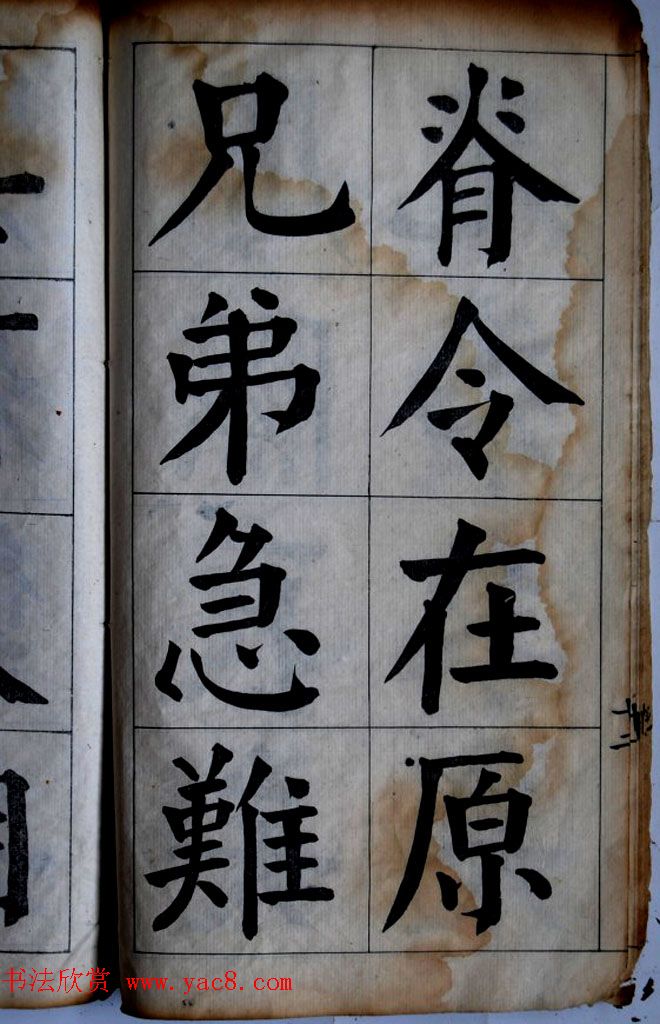 脊令在原
兄弟急難
十二
书法欣赏 www.yac8.com